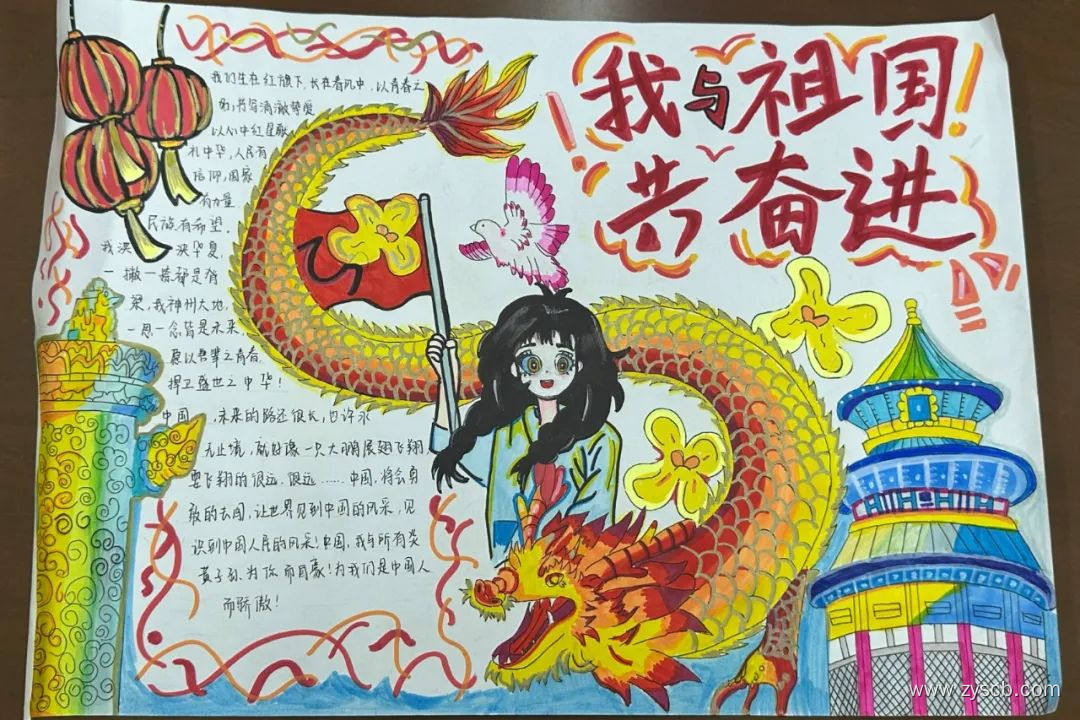 我与祖国
共奋进
我们生在红旗下,长在春风中,以青春之
名,书写清澈挚爱
以心中红星献
礼中华,人民有
信仰,国家
有力量
民族有希望,
我泱 泱华夏,
一撇一捺都是脊
梁,我神州大地,
一思一念皆是未来
愿以吾辈之青春,
捍卫盛世之中华!
中国,未来的路还很长,也许永
无止境,就好像一只大鹏展翅飞翔
要飞翔的很远,很远……中国,将会勇
敢的去闯,让世界见到中国的风采,见
识到中国人民的风采!中国,我与所有炎
黄子孙,为你而自豪!为我们是中国人
而骄傲!
www.zyscb.com